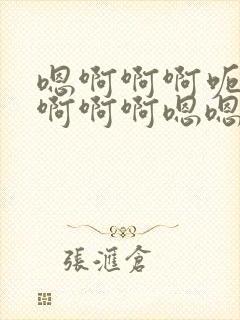 嗯啊啊啊呃
啊啊啊嗯嗯
張滙倉